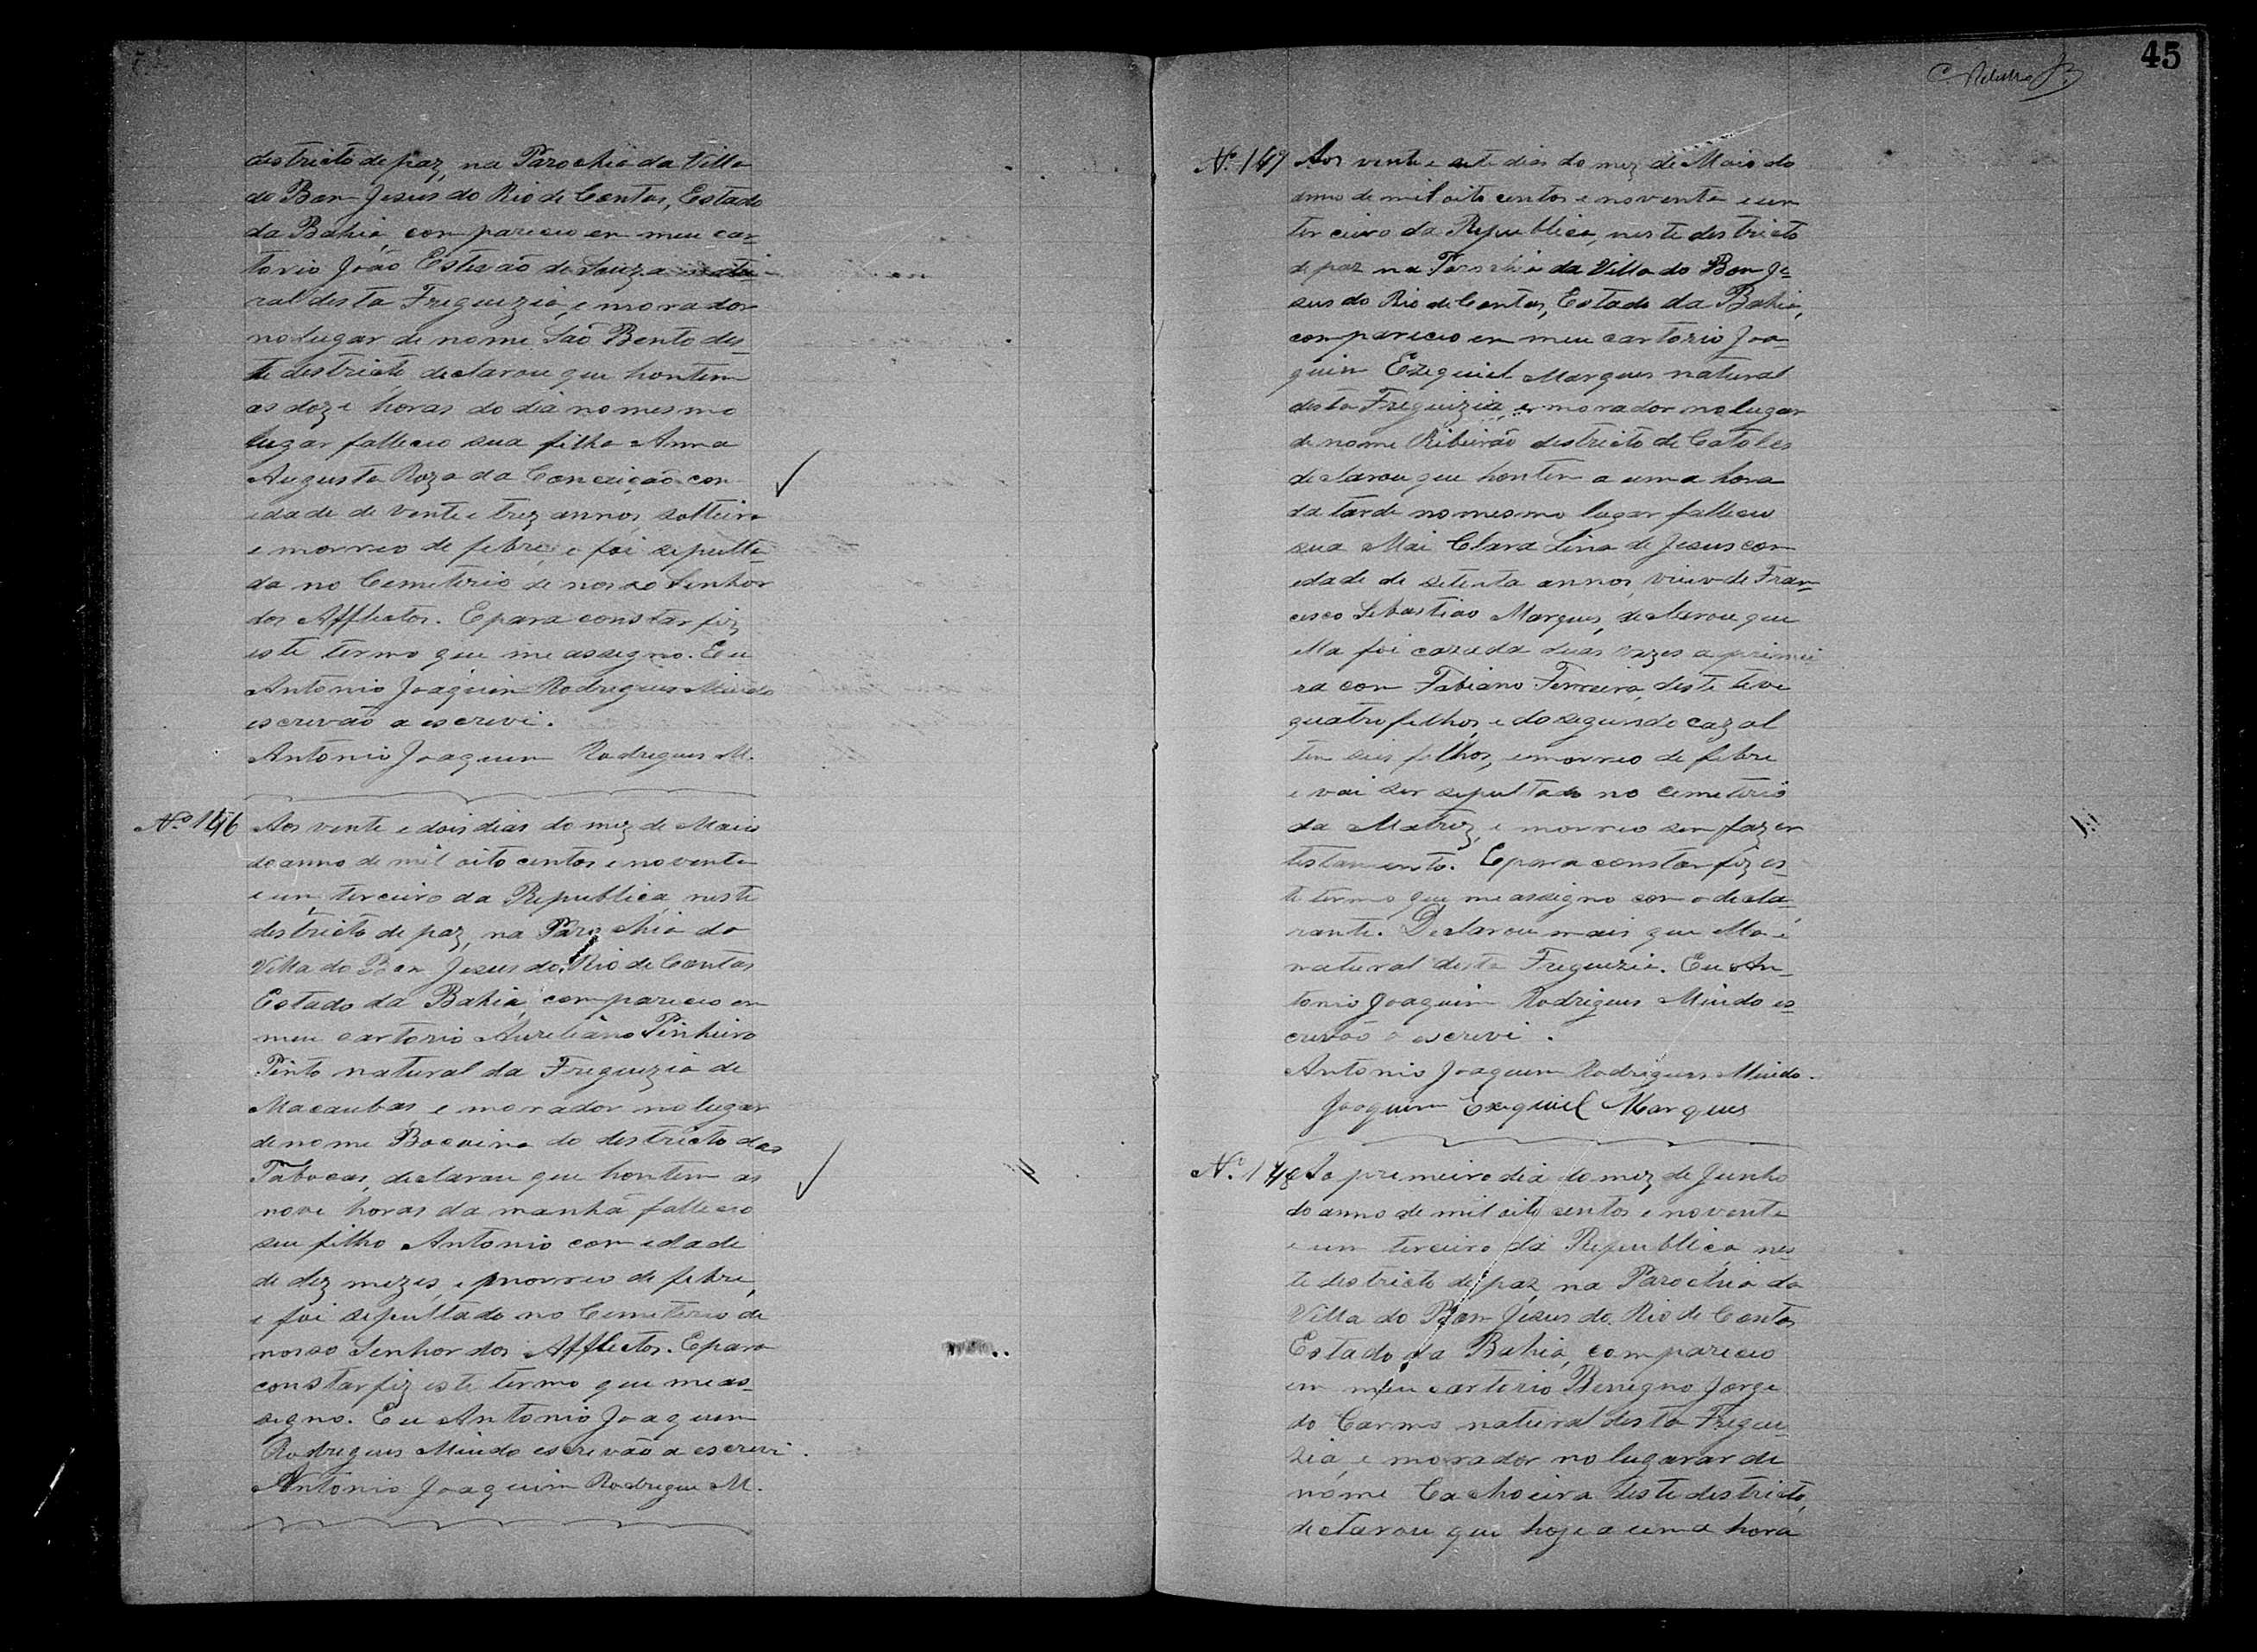 districto de paz, na Parochia da Villa
do Bom Jesus do Rio de Contas, Estado
da Bahia, compareceu em meu car-
torio João Estevão de Souza natu-
ral desta Freguezia, e morador
no lugar de nome São Bento des-
te districto, declarou que hontem
as doze horas do dia no mesmo
lugar falleceu sua filha Anna
Augusta Roza da Conceição com
idade de vente e trez annos, solteira
e morreo de febre, e foi sepulta-
da no Cemeterio de nosso Senhor
dos Afflictos. E para constar fiz
este termo que me assigno. Eu
Antonio Joaquim Rodrigues Miudo
escrevão a escrevi.
Antonio Joaquim Rodrigues M.
Nº 146 Aos vente e dois dias do mez de Maio
do anno de mil oito centos e noventa
e um, terceiro da Republica, neste
destricto de paz, na Parochia da
Villa do Bom Jesus do Rio de Contas
Estado da Bahia, compareceo em
meu cartorio Aureliano Pinheiro
Pinto natural da Freguezia de
Macaubas, e morador no lugar
de nome Bocaina do destricto das
Tabocas, declarou que hontem as
nove horas da manhã falleceo
seu filho Antonio com edade
de dez mezes, e morreo de febre,
e foi sepultado no Cemeterio de
nosso Senhor dos Afflictos. E para
constar fiz este termo que me as-
signo. Eu Antonio Joaquim
Rodrigues Miudo escrevão a escrevi.
Antonio Joaquim Rodrigues M.
45
Nº 147 Aos vente e sete dias do mez de Maio do
anno de mil oito centos e noventa e um
terceiro da Republica, neste destricto
de paz na Parochia da Villa do Bom Je-
sus do Rio de Contas, Estado da Bahia,
compareceo em meu cartorio Joa-
quim Ezequiel Marques natural
desta Freguizia, e morador no lugar
de nome Ribeirão destricto de Catoles
declarou que hontem a uma hora
da tarde no mesmo lugar falleceu
sua Mai Clara Lina de Jesus com
edade de setenta annos, viuva de Fran-
cisco Sebastião Marques, declarou que
ella foi cazada duas vezes a primei
ra com Fabiano Ferreira, deste teve
quatro filhos, e do segundo cazal
tem seis filhos, e morreo de febre
e vai ser sepultada no cemeterio
da Matriz, e morreo sem fazer
testamento. E para constar fiz es-
te termo que me assigno com o decla-
rante. Declarou mais que ella é
natural desta Freguezia. Eu An-
tonio Joaquim Rodrigues Miudo es-
crevão o escrevi.
Antonio Joaquim Rodrigues Miudo.
Joaquim Exequiel Marques
Nº 148 Ao primeiro dia do mez de Junho
do anno de mil oito centos e noventa
e um terceiro da Republica, nes
te destricto de paz, na Parochia da
Villa do Bom Jesus do Rio de Contas
Estado da Bahia, compareceo
em meu cartorio Benegno Jorge
do Carmo natural desta Fregue-
zia, e morador no lugarar de
nome Cachoeira deste destricto,
declarou que hoje a uma hora